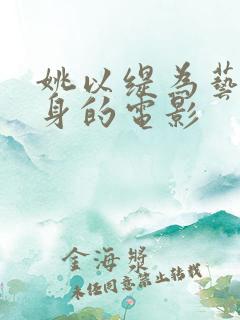 姚以缇为藝
身的电影
金海漿
未经同意禁止转载